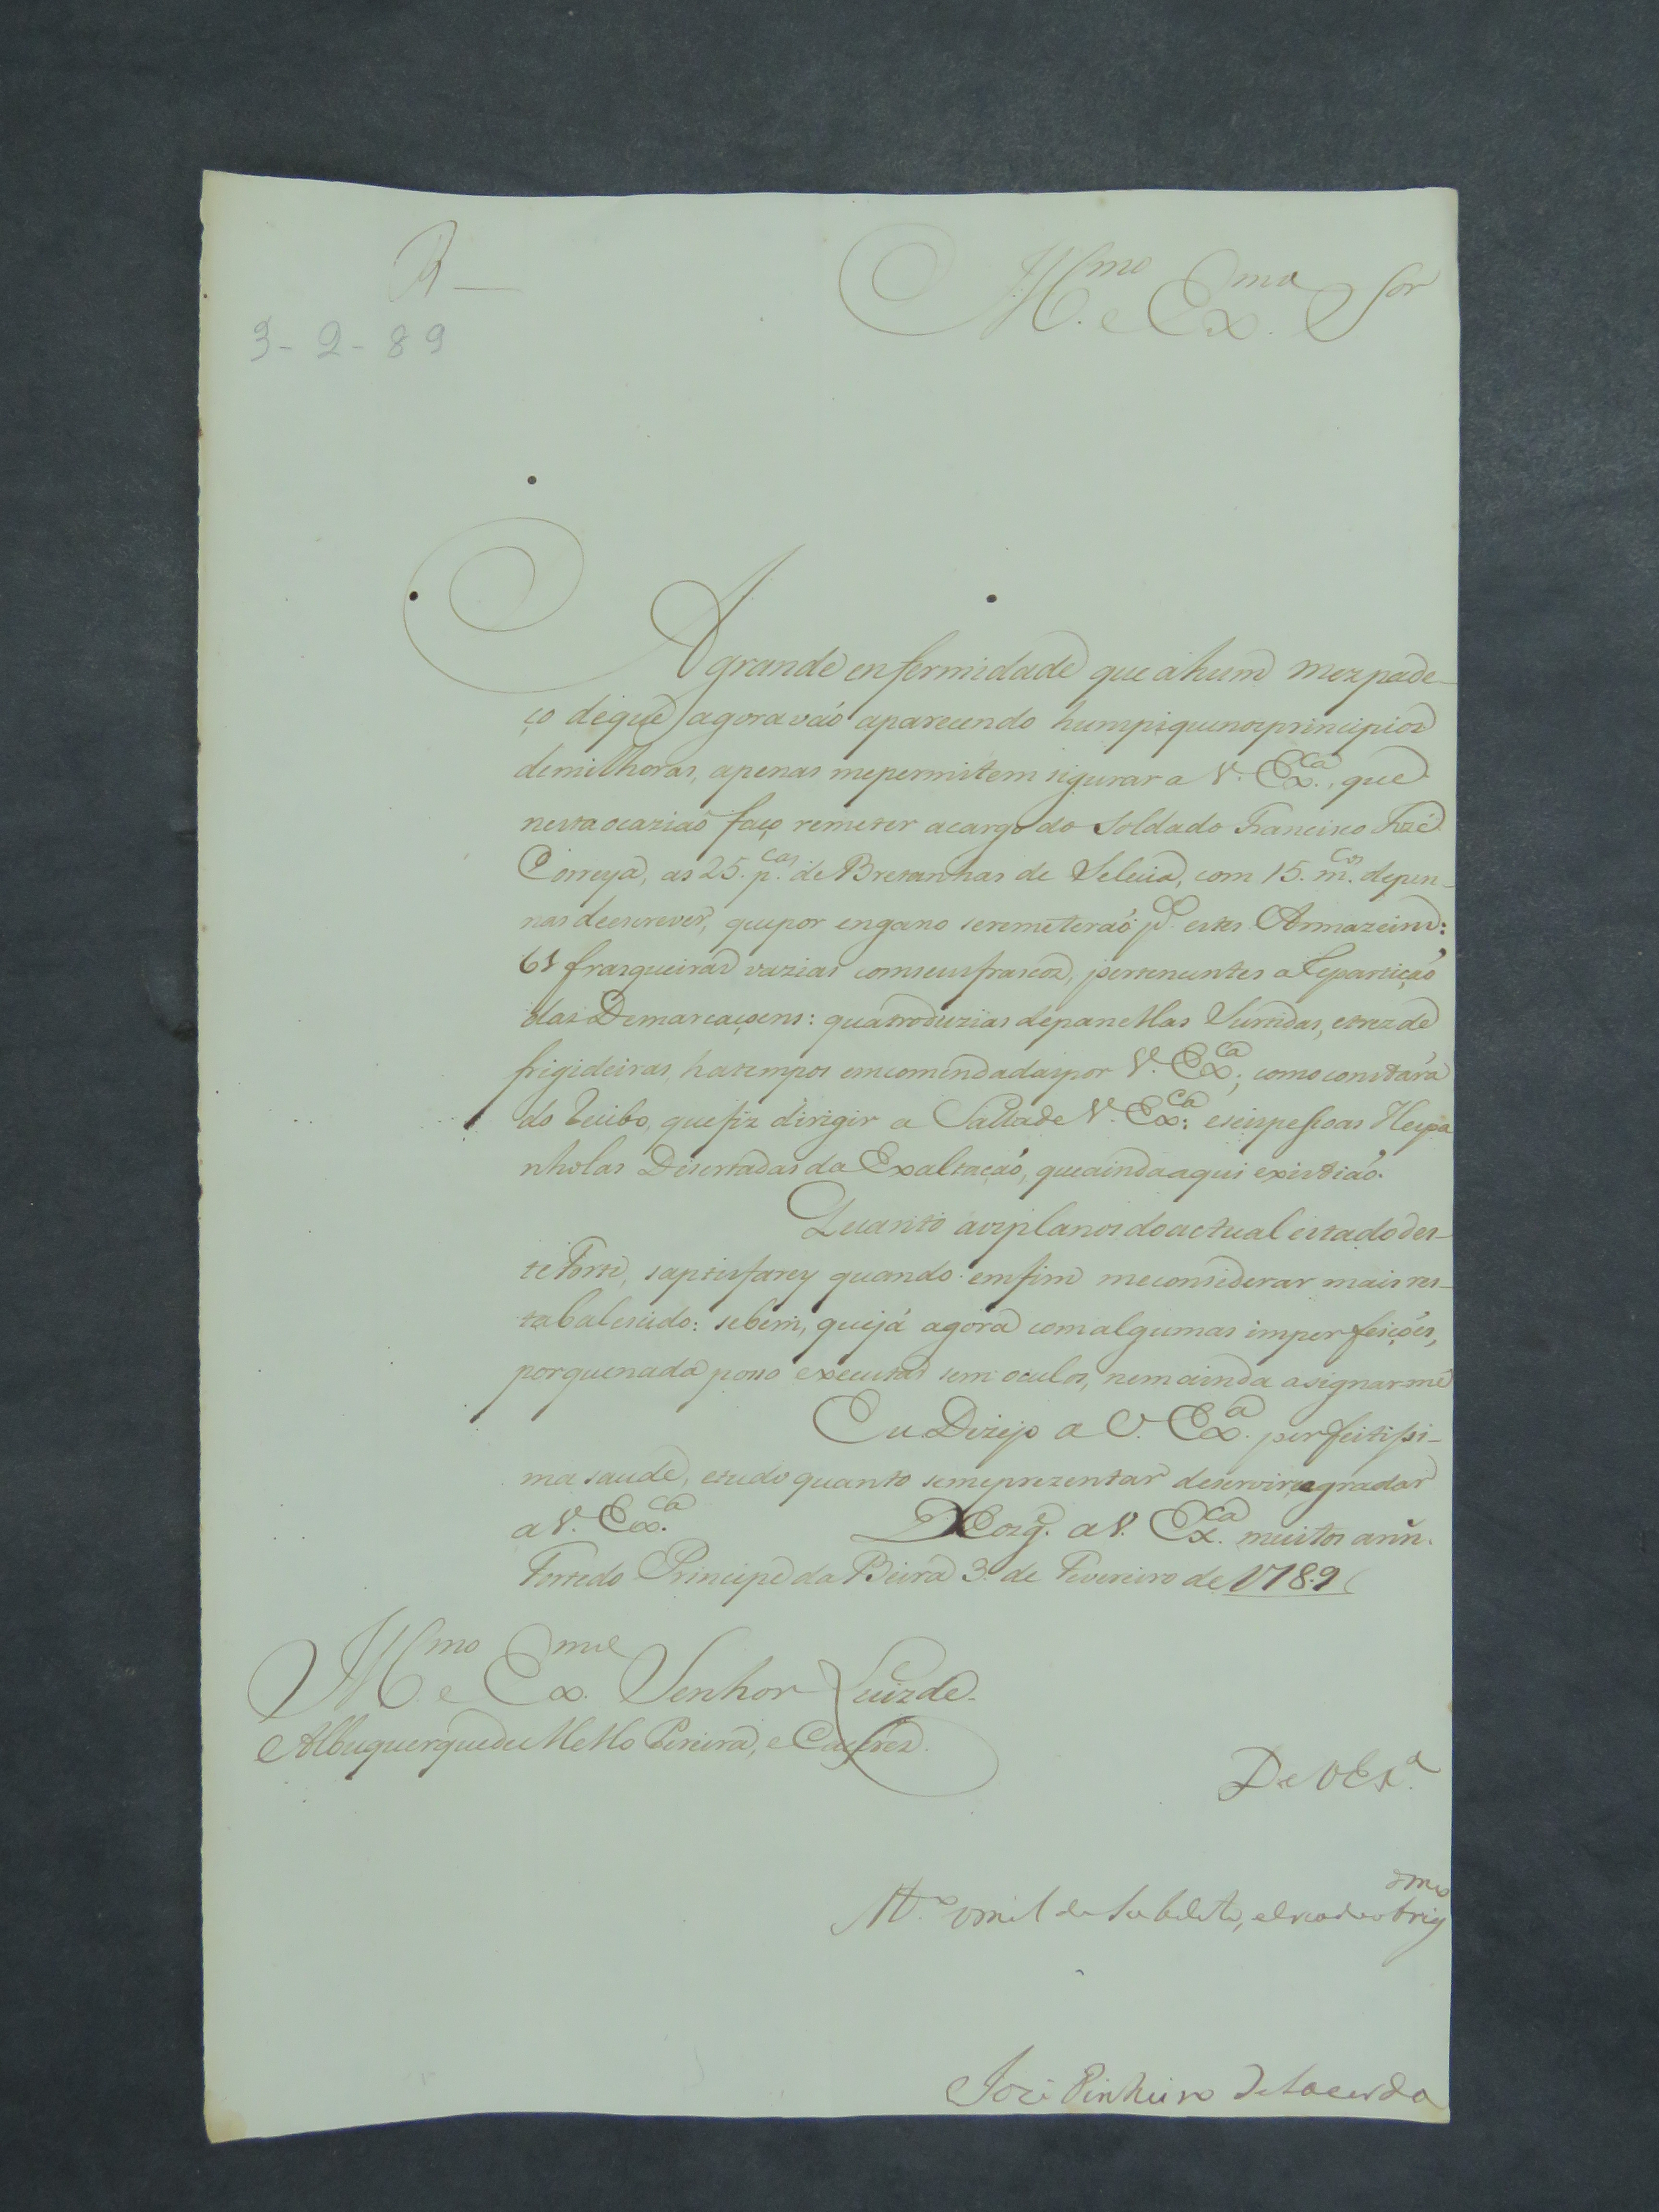 R
3-2-89
Ill.mo e Ex.mo Sor
A grande enfermidade que a hum mez pade-
ço de que agora vaó aparecendo hum piquenos principios
de milhoras, apenas me permitem sigurar a V. Ex.ca, que
nesta ocaziaó faço remeter a cargo do Soldado Francisco Jozé
Correya, as 25. p.cas de Bretanhas de Selecia, com 15. m.cos de pen-
nas de escrever, que por engano se remeteraó p.a estes Armazeins:
61 frasqueiras vazias com seus frascos, pertencentes a Repartiçaó
das Demarcaçoens: quatro duzias de panellas Surtidas, e trez de
frigideiras, ha tempos emcomendadas por V. Ex.ca; como constará
do Recibo, que fiz dirigir a Salla de V. Ex.ca: e seis pessoas Hespa
nholas Disertadas da Exaltaçaó, que ainda aqui existiaó.
Quanto aos planos do actual estado des-
te Forte, saptisfarey quando emfim me considerar mais res-
tabalescido: se bem, que já agora com algumas imperfeiçóes,
porque nada posso executar sem oculos, nem ainda asignar-me
Eu Dizejo a V. Ex.a perfeitissi-
ma saude, e tudo quanto se me prezentar de servir, e agradar
a V. Ex.ca D.s g.e a V. Ex.ca muitos ann.
Forte do Principe da Beira 3. de Fevereiro de 1789
Ill.mo e Ex.mo Senhor Luiz de
Albuquerque de Mello Pereira, e Caceres.
De V Ex.a
M.to omil de Subdito, e Criado obrig.dmo
Jozé Pinheiro de Lacerda